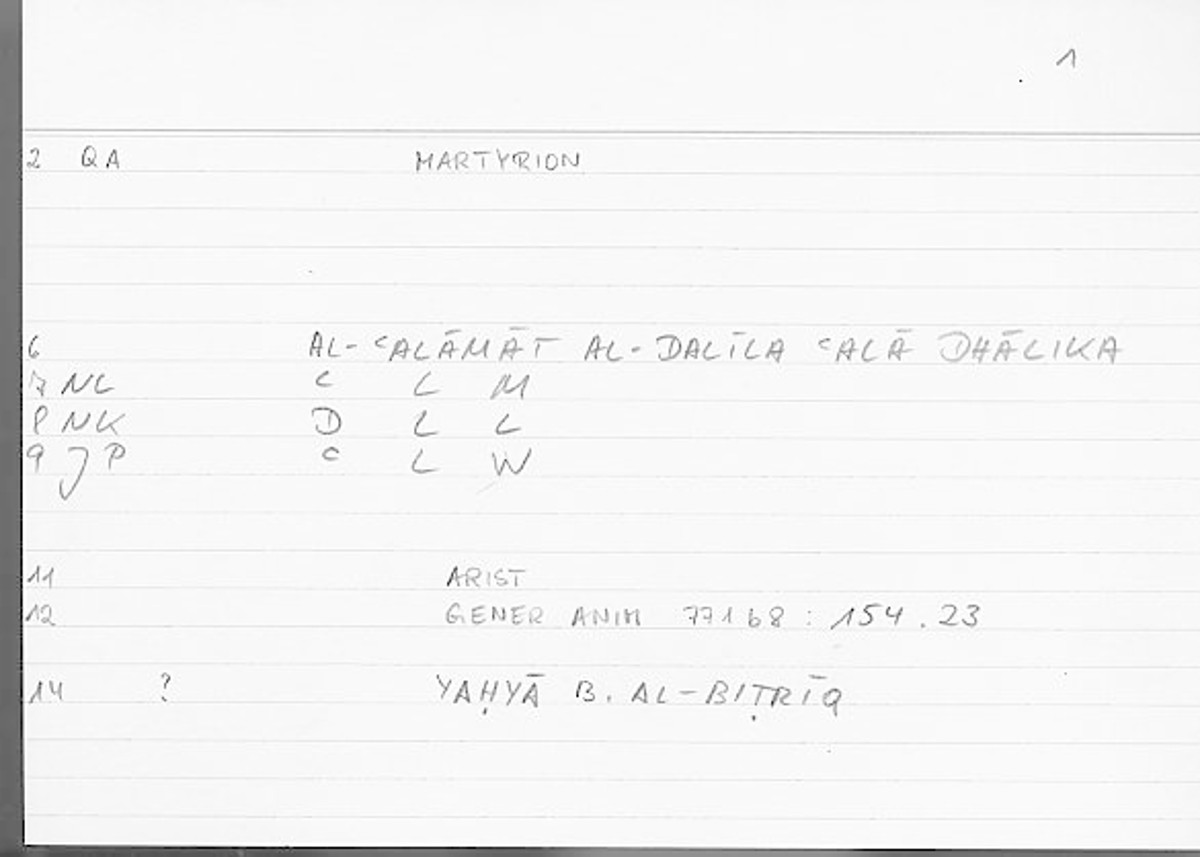 1
2 QA MARTYRION
6 AL-ʿALĀMĀT AL-DALĪLA ʿALĀ DHĀLIKA
7 NC ʿ L M
8 NK D L L
9 JP ʿ L W
11 ARIST
12 GENER ANIM 771b8 : 154.23
14 ? YAḤYĀ B. AL-BIṬRĪQ